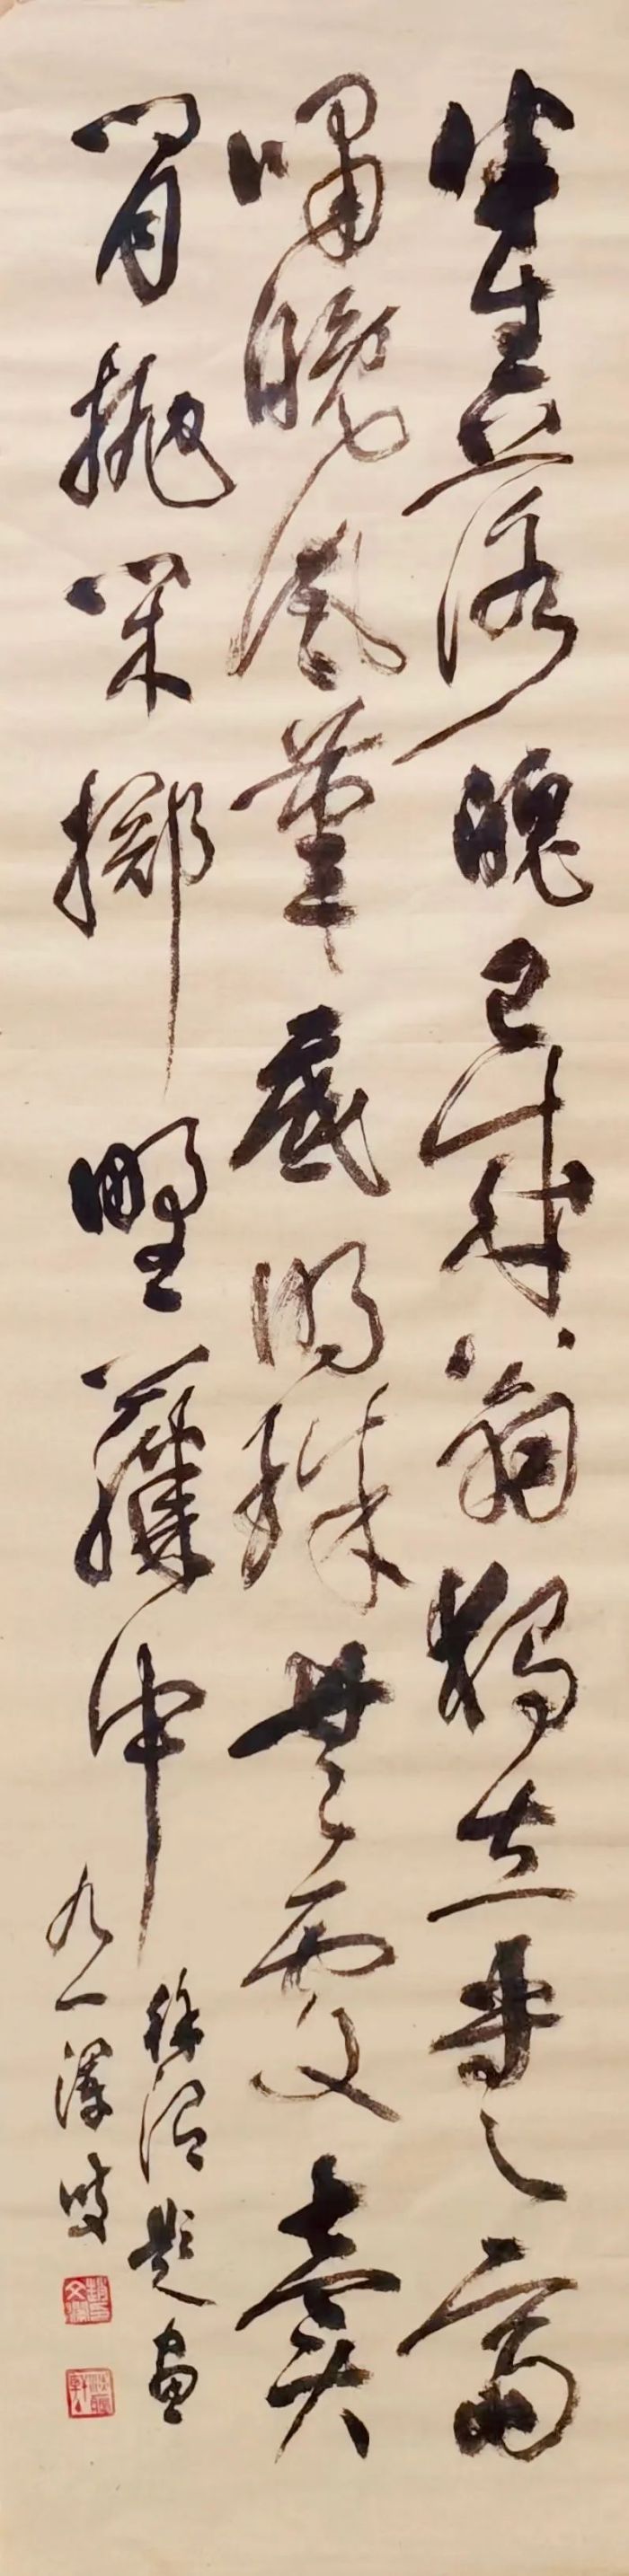 半生落魄已成翁獨立書齋
嘯晚風筆底明珠無處賣
閒拋閑擲野藤中
徐渭題畫
九一